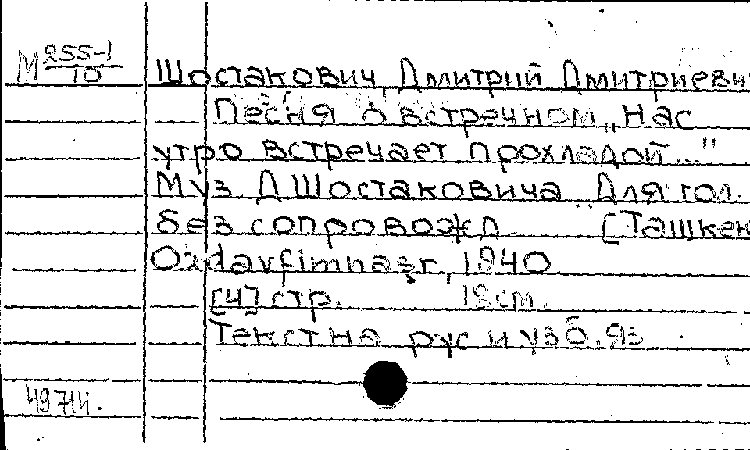 М 255-1/10
Шостакович, Дмитрий Дмитриеви
Песня о встречном „Нас
утро встречает прохладой..."
Муз Д Шостаковича Для гол.
без сопровожд [Ташкен
Ozdavfimnaşr, 1940
[4] стр. 18 cm.
Текст на рус и узб. яз
49714.